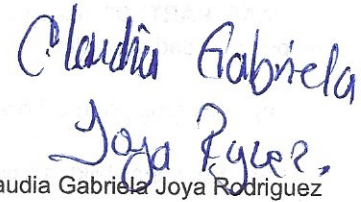 Claudia Gabriela
Joya Rguez.
audia Gabriela Joya Rodriguez